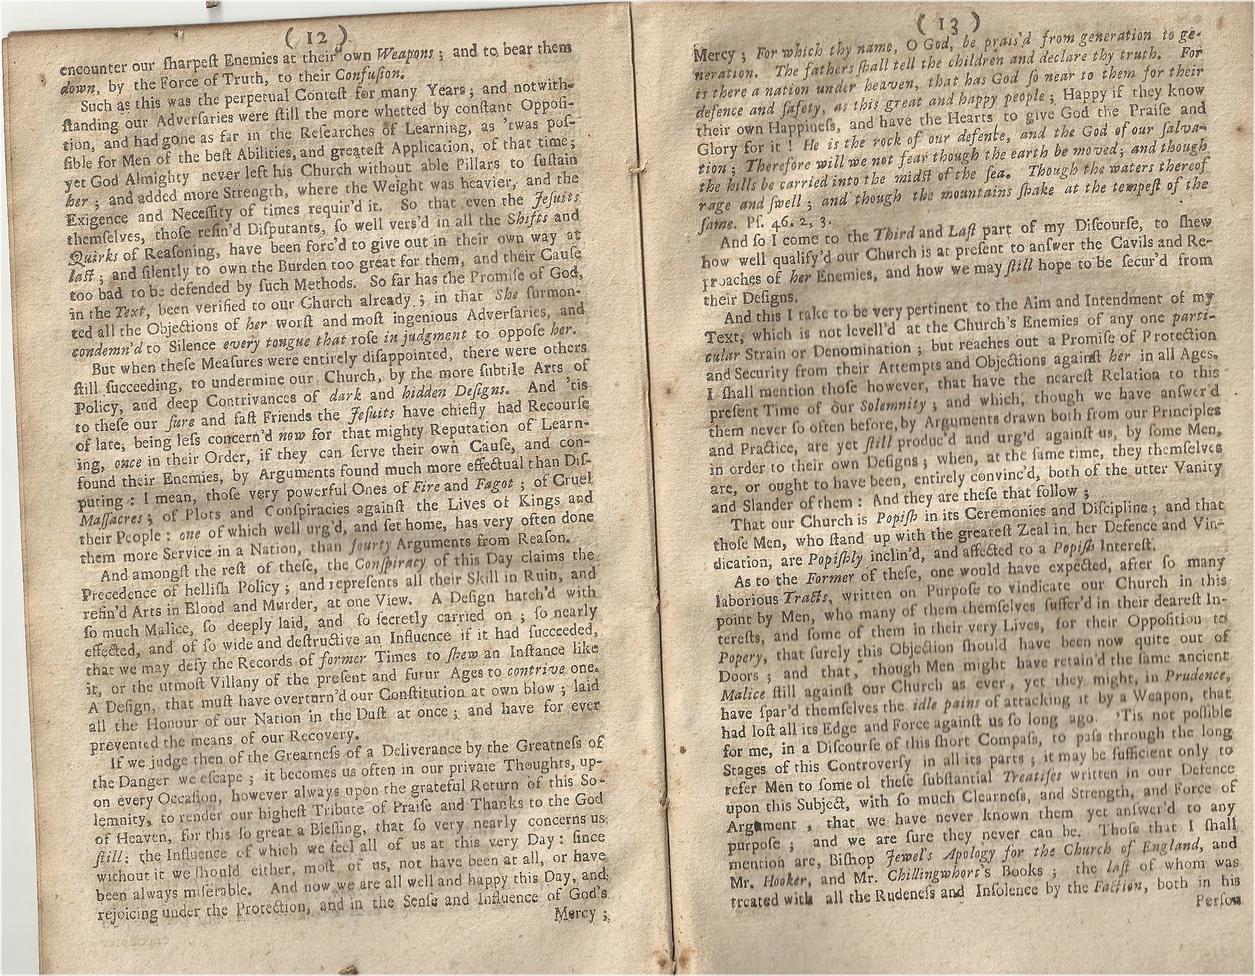 ( 12 )
encounter our ſharpeſt Enemies at their own Weapons ; and to bear them
down, by the Force of Truth, to their Confuſion.
Such as this was the perpetual Conteſt for many Years ; and notwith-
ſtanding our Adverſaries were ſtill the more whetted by conſtant Oppoſi-
tion, and had gone as far in the Reſearches of Learning, as 'twas poſ-
ſible for Men of the beſt Abilities, and greateſt Application, of that time ;
yet God Almighty never left his Church without able Pillars to ſuſtain
her ; and added more Strength, where the Weight was heavier, and the
Exigence and Neceſſity of times requir'd it. So that even the Jeſuits
themſelves, thoſe refin'd Diſputants, ſo well vers'd in all the Shifts and
Quirks of Reaſoning, have been forc'd to give out in their own way at
laſt ; and ſilently to own the Burden too great for them, and their Cauſe
too bad to be defended by ſuch Methods. So far has the Promiſe of God,
in the Text, been verified to our Church already ; in that She ſurmon-
ted all the Objections of her worſt and moſt ingenious Adverſaries, and
condemn'd to Silence every tongue that roſe in judgment to oppoſe her.
But when theſe Meaſures were entirely diſappointed, there were others
ſtill ſucceeding, to undermine our Church, by the more ſubtile Arts of
Policy, and deep Contrivances of dark and hidden Deſigns. And 'tis
to theſe our ſure and faſt Friends the Jeſuits have chiefly had Recourſe
of late, being leſs concern'd now for that mighty Reputation of Learn-
ing, once in their Order, if they can ſerve their own Cauſe, and con-
found their Enemies, by Arguments found much more effectual than Diſ-
puting : I mean, thoſe very powerful Ones of Fire and Fagot ; of Cruel
Maſſacres ; of Plots and Conſpiracies againſt the Lives of Kings and
their People : one of which well urg'd, and ſet home, has very often done
them more Service in a Nation, than fourty Arguments from Reaſon.
And amongſt the reſt of theſe, the Conſpiracy of this Day claims the
Precedence of helliſh Policy ; and repreſents all their Skill in Ruin, and
refin'd Arts in Blood and Murder, at one View. A Deſign hatch'd with
ſo much Malice, ſo deeply laid, and ſo ſecretly carried on ; ſo nearly
effected, and of ſo wide and deſtructive an Influence if it had ſucceeded,
that we may defy the Records of former Times to ſhew an Inſtance like
it, or the utmoſt Villany of the preſent and futur Ages to contrive one.
A Deſign, that muſt have overturn'd our Conſtitution at own blow ; laid
all the Honour of our Nation in the Duſt at once ; and have for ever
prevented the means of our Recovery.
If we judge then of the Greatneſs of a Deliverance by the Greatneſs of
the Danger we eſcape ; it becomes us often in our private Thoughts, up-
on every Occaſion, however always upon the grateful Return of this So-
lemnity, to render our higheſt Tribute of Praiſe and Thanks to the God
of Heaven, for this ſo great a Bleſſing, that ſo very nearly concerns us
ſtill: the Influence of which we feel all of us at this very Day : ſince
without it we ſhould either, moſt of us, not have been at all, or have
been always miſerable. And now we are all well and happy this Day, and
rejoicing under the Protection, and in the Senſe and Influence of God's
Mercy ;
( 13 )
Mercy ; For which thy name, O God, be prais'd from generation to ge-
neration. The fathers ſhall tell the children and declare thy truth. For
is there a nation under heaven, that has God ſo near to them for their
defence and ſafety, as this great and happy people ; Happy if they know
their own Happineſs, and have the Hearts to give God the Praiſe and
Glory for it ! He is the rock of our defence, and the God of our ſalva-
tion ; Therefore will we not fear though the earth be moved; and though
the hills be carried into the midſt of the ſea. Though the waters thereof
rage and ſwell ; and though the mountains ſhake at the tempeſt of the
ſame. Pſ. 46. 2, 3.
And ſo I come to the Third and Laſt part of my Diſcourſe, to ſhew
how well qualify'd our Church is at preſent to anſwer the Cavils and Re-
proaches of her Enemies, and how we may ſtill hope to be ſecur'd from
their Deſigns.
And this I take to be very pertinent to the Aim and Intendment of my
Text, which is not levell'd at the Church's Enemies of any one parti-
cular Strain or Denomination ; but reaches out a Promiſe of Protection
and Security from their Attempts and Objections againſt her in all Ages.
I ſhall mention thoſe however, that have the neareſt Relation to this
preſent Time of our Solemnity ; and which, though we have anſwer'd
them never ſo often before, by Arguments drawn both from our Principles
and Practice, are yet ſtill produc'd and urg'd againſt us, by ſome Men,
in order to their own Deſigns ; when, at the same time, they themſelves
are, or ought to have been, entirely convinc'd, both of the utter Vanity
and Slander of them : And they are theſe that follow ;
That our Church is Popiſh in its Ceremonies and Diſcipline ; and that
thoſe Men, who ſtand up with the greateſt Zeal in her Defence and Vin-
dication, are Popiſhly inclin'd, and affected to a Popiſh Intereſt.
As to the Former of theſe, one would have expected, after ſo many
laborious Tracts, written on Purpoſe to vindicate our Church in this
point by Men, who many of them themſelves ſuffer'd in their deareſt In-
tereſts, and ſome of them in their very Lives, for their Oppoſition to
Popery, that ſurely this Objection ſhould have been now quite out of
Doors ; and that, though Men might have retain'd the ſame ancient
Malice ſtill againſt our Church as ever, yet they might, in Prudence,
have ſpar'd themſelves the idle pains of attacking it by a Weapon, that
had loſt all its Edge and Force againſt us ſo long ago. 'Tis not poſſible
for me, in a Diſcourſe of this ſhort Compaſs, to paſs through the long
Stages of this Controverſy in all its parts ; it may be ſufficient only to
refer Men to ſome of theſe ſubſtantial Treatiſes written in our Defence
upon this Subject, with ſo much Clearneſs, and Strength, and Force of
Argument, that we have never known them yet anſwer'd to any
purpoſe ; and we are ſure they never can be. Thoſe that I ſhall
mention are, Biſhop Jewel's Apology for the Church of England, and
Mr. Hooker, and Mr. Chillingwort's Books ; the laſt of whom was
treated with all the Rudeneſs and Inſolence by the Faction, both in his
Perſon